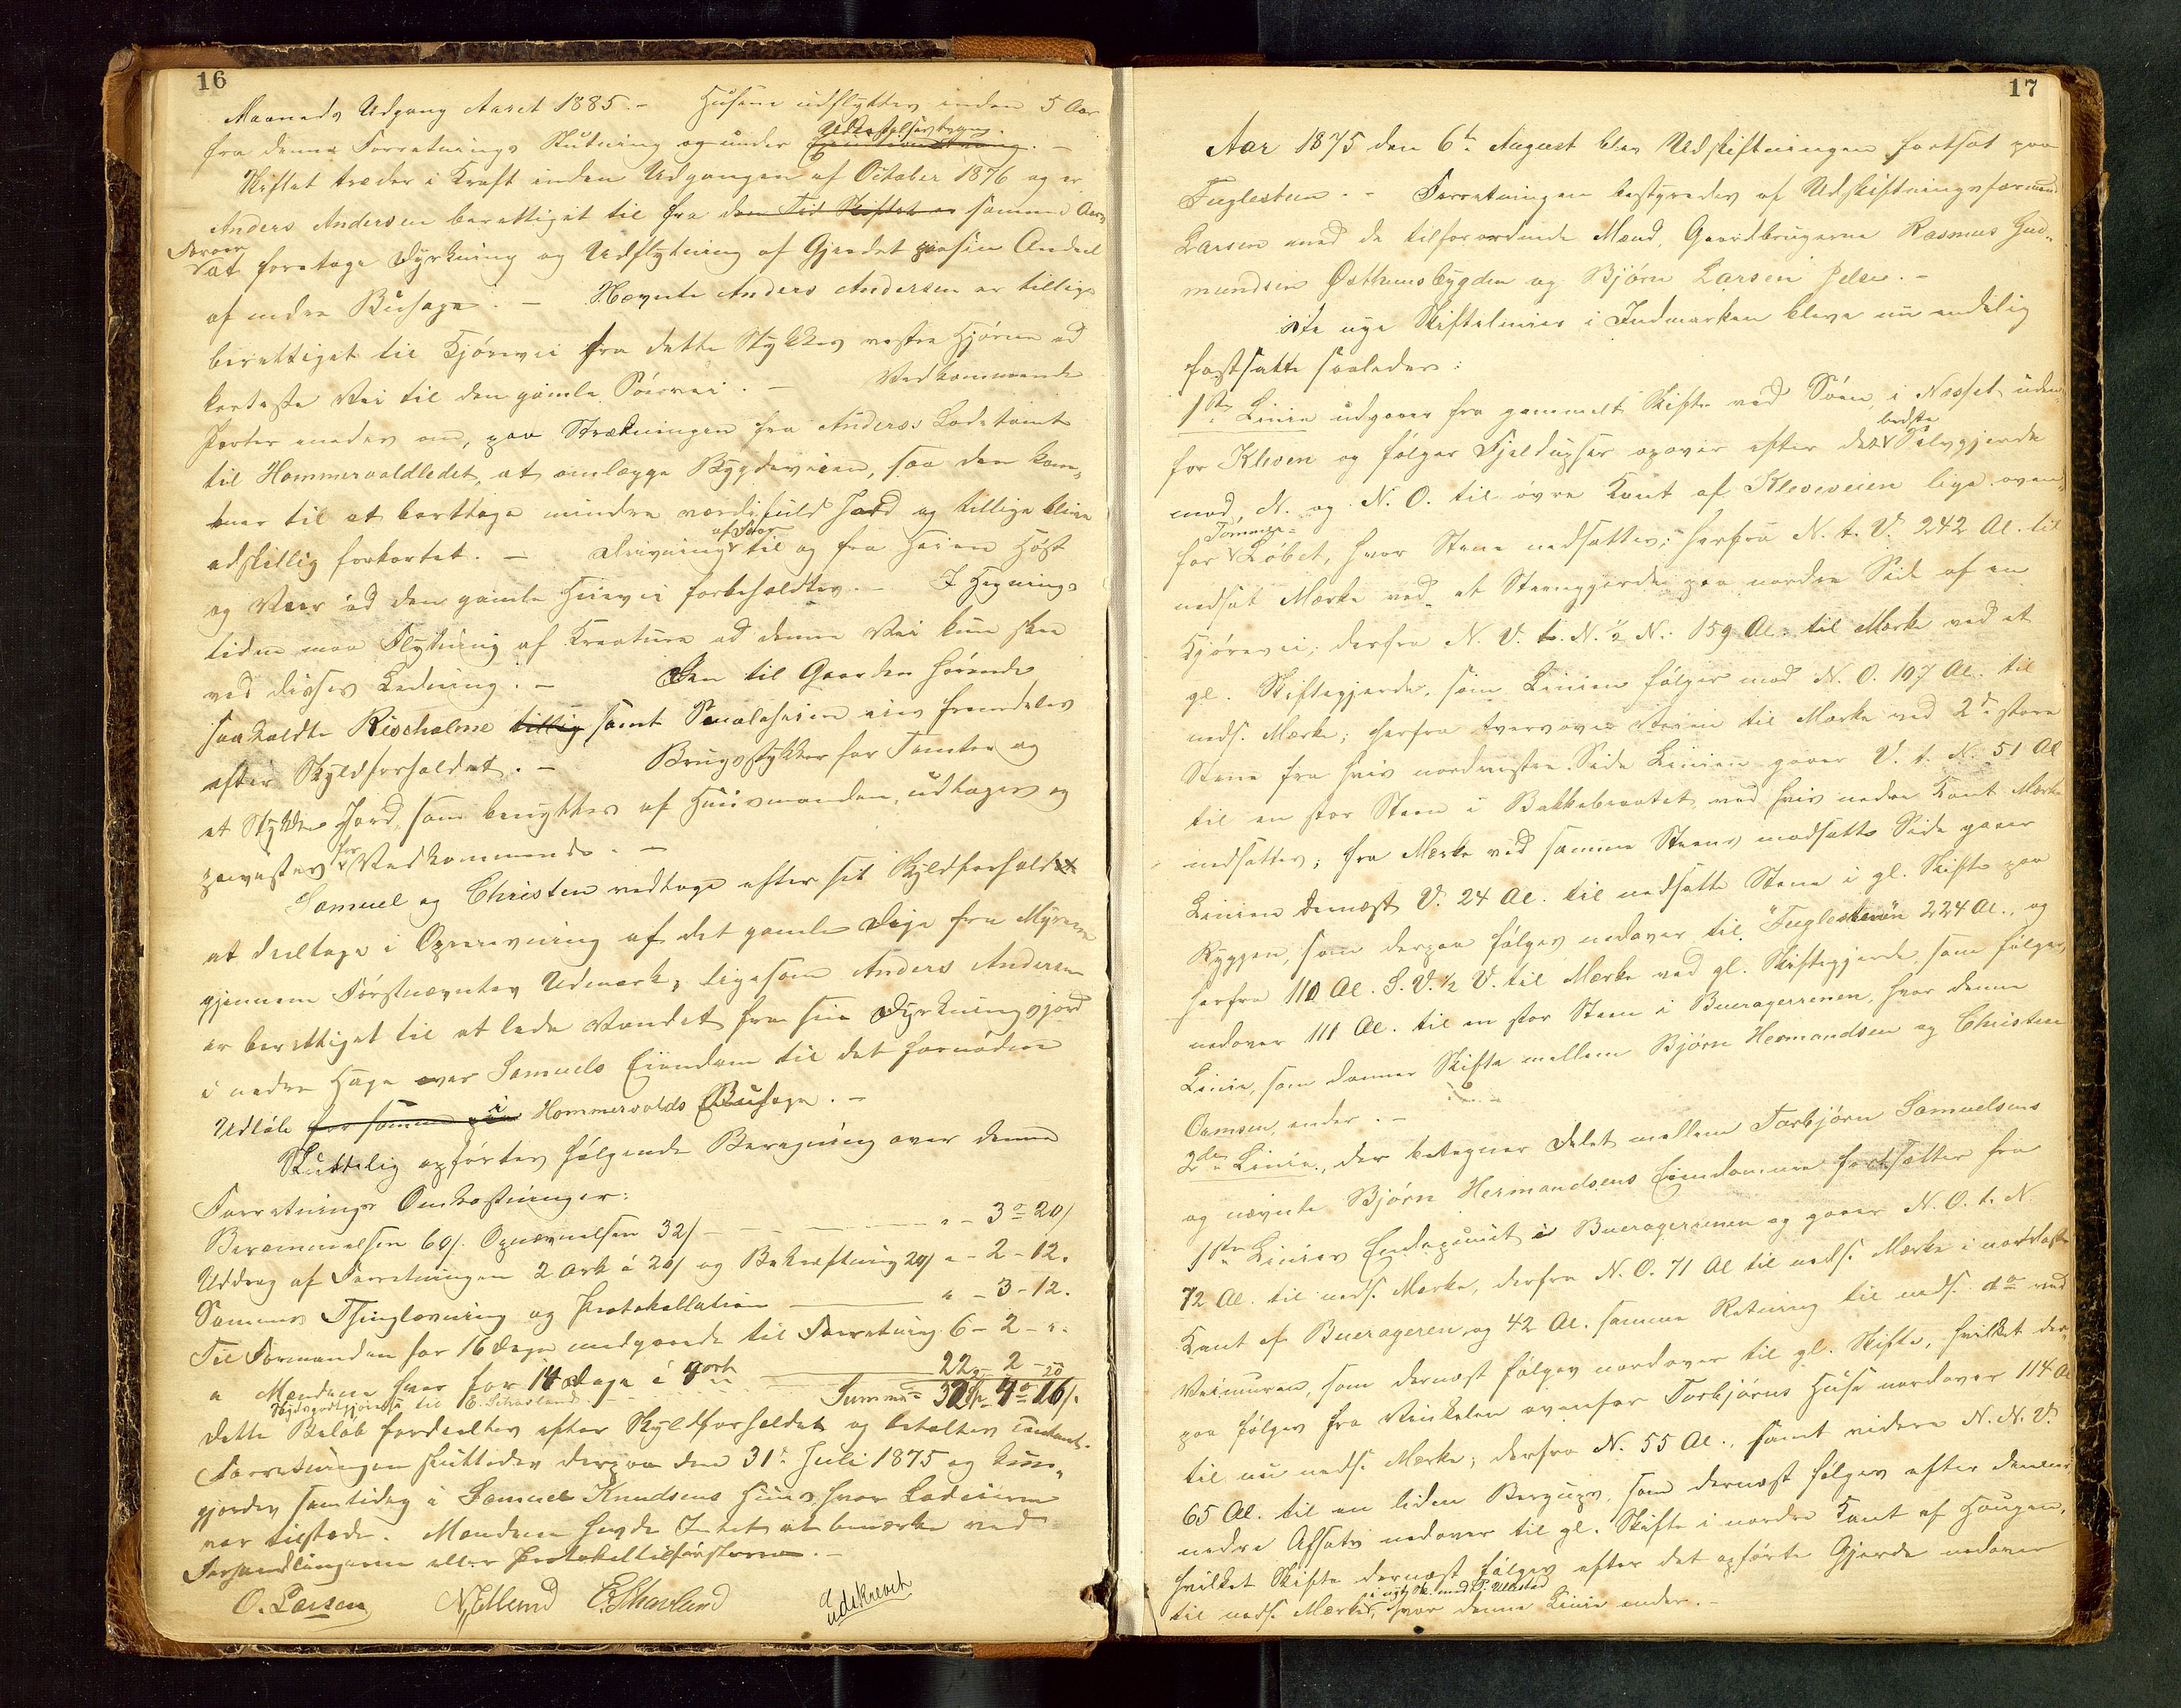 16
Maaneds Udgang Aaret 1885. – Husene udflyttes inden 5 Aar
fra denne Forretnings Slutning og under
Skiftet træder i Kraft inden Udgangen af October 1876 og er
Anders Andersen berettiget til fra den Tid Skiftet er samme Aars
Foraar
at foretage Dyrkning og Udflytning af Gjerdet paa sin Andeel
af nedre Buhage. – Nævnte Anders Andersen er tillige
berettiget til Kjørevei fra dette Stykkes vestre Hjørne ad
korteste Vei til den gamle Vei. – Vedkommende
Parter enedes om, paa Strækningen fra Anders's Ladetomt
til Hommervoldledet, at omlægge Bygdeveien, saa den kom„
mer til at borttage mindre værdifuld Jord og tillige blive
af Faar
adskillig forkortet. – Drivning til og fra Heien Høst
og Vaar ad den gamle Heievei forbeholdtes. – I Hegnings
tiden maa Flytning af Kreature ad denne Vei kun ske
ved disses Ledning. – Den til Gaarden hørende
saakaldte Risholme tillig samt Smaleheien eies fremdeles
efter Skyldforholdet. – Brugsstykker for Tomter og
et Stykke Jord, som benyttes af Huusmanden, udtages og
paavistes for Vedkommende. –
Samuel og Christen vedtage efter sit Skyldforhold
at deeltage i Oprensning af det gamle Dige fra Myrene
gjennem Førstnævntes Udmark, ligesom Anders Andersen
er berettiget til at lede Vandet fra sin Dyrkningsjord
i nedre Hage over Samuels Eiendom til det fornødne
Udløb for samme i Hommervolds Buhage. –
Sluttelig opførtes følgende Beregning over denne
Forretnings Omkostninger:
Berammelsen 60/. Opnævnelsen 32/ – „ – 3 o 20/
Uddrag af Forretningen 2 Ark á 20/ og Bekræftning 20/ „ – 2 – 12.
Sammes Thinglæsning og Protokollation „ – 3 – 12.
Til Formanden for 16 Dage medgaaede til Forretning 6 – 2 – „
„ Mændene hver for 14 Dage á 4 ort 22 – 2 –
Skydsgodtgjørelse til E. Skarland – 20
Summa 32 Sp 4 o 16/.
Dette Beløb fordeeltes efter Skyldforholdet og betaltes contant.
Forretningen sluttedes derpaa den 31te Juli 1875 og kund„
gjordes samtidig i Samuel Knudsens Huus, hvor Lodeierne
var tilstede. Mændene havde Intet at bemærke ved
Forhandlingerne eller Protokoltilførslerne. –
O. Larsen N. Edland E. Skarland
Udskrevet
17
Aar 1875 den 6te August blev Udskiftningen fortsat paa
Fuglesteen. – Forretningen bestyredes af Udskiftningsformand
Larsen med de tilforordnede Mænd, Gaardbrugerne Rasmus Gud„
mundsen Østhuusbygden og Bjørn Larsen –
De nye Skiftelinier i Indmarken bleve nu endelig
fastsatte saaledes:
1ste Linie udgaaer fra gammelt Skifte ved Søen, i Næsset uden„
bedste
for Kleven og følger Fjeldupser opover efter det Selvgjerde
mod N. og N. O. til øvre Kant af Kleveveien lige oven„
Tømmer„
for Løbet, hvor Stene nedsattes; herfra N. t. V. 242 Al. til
nedsat Mærke ved et Steengjerde paa nordre Side af en
Kjørevei; derfra N. V. t. N. ½ N. 159 Al. til Mærke ved et
gl. Skiftegjerde, som Linien følger mod N. O. 107 Al. til
neds. Mærke; herfra tversover Veien til Mærke ved 2de store
Stene fra hvis nordvestre Side Linien gaaer V. t. N. 51 Al
til en stor Steen i Bakkebraatet, ved hvis nedre Kant Mærke
nedsattes; fra Mærke ved samme Steens modsatte Side gaaer
Linien dernæst V. 24 Al. til nedsatte Stene i gl. Skifte paa
Ryggen, som derpaa følges nedover til "Fuglestenen" 224 Al., og
herfra 110 Al. S. V. ½ V. til Mærke ved gl. Skiftegjerde, som følges
nedover 111 Al. til en stor Steen i Bueragerrenen, hvor denne
Linie, som danner Skifte mellem Bjørn Hermandsen og Christen
Ormsen, ender. –
2den Linie, der betegner Delet mellem Torbjørn Samuelsens
og nævnte Bjørn Hermandsens Eiendomme fortsætter fra
1ste Linies Endepunkt i Bueragerrenen og gaaer N. O. t. N.
72 Al. til neds. Mærke, derfra N. O. 71 Al til neds. Mærke i nordvestre
Kant af Buerageren, og 42 Al. samme Retning til neds. do ved
Veimuren, som dernæst følges nordover til gl. Skifte, hvilket der„
paa følges fra Vinkelen ovenfor Torbjørns Huse nordover 114 Al
til nu neds. Mærke; derfra N. 55 Al., samt videre N. N. V.
65 Al. til en liden Bergups, som dernæst følges efter dennes
nedre Afsats nedover til gl. Skifte i nordre Kant af Haugen,
hvilket Skifte dernæst følges efter det opførte Gjerde nedover
til neds. Mærke, hvor denne Linie ender. –